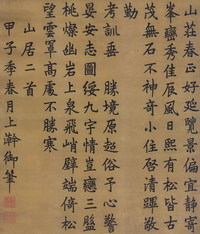 山莊春正好延覽景偏宜靜寄
峯巒秀佳辰風日熙有松皆古
茂無石不神奇小住啟清蹕敬
勤
考訓垂　勝境原超俗予心警
晏安志圖綏九宇情豈戀三盤
桃燦幽岩上泉飛峭壁端倚松
望雲罩高處不勝寒
山居二首
甲子季春月上澣御筆